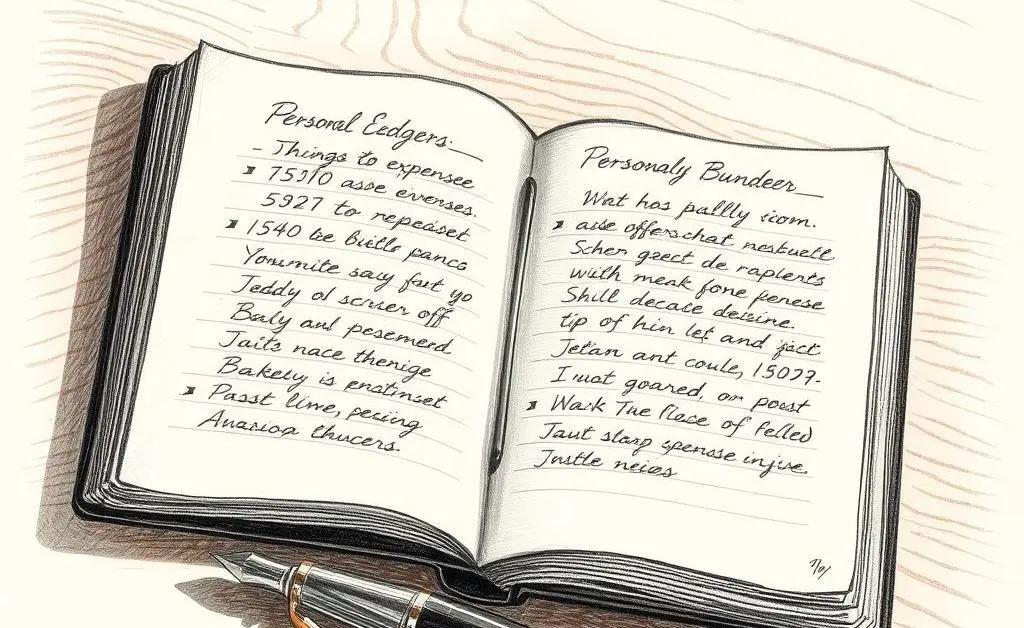 Personal Eedgers.
- Things to expensee
75310 asse evenses.
5927 to repeaset
1540 be buille pancs
Youmnite say fart yo
Jeddy ol scruer off
Baly and pesemerd
Jaits nace thenige
Bakely is enstinset
Passt line, pesing
thucers.
Personaly Bundeer
Wat has pallly
asse offerschat
Scher gzect de raplents
with menk fone penese
Shill decade
tip of hin let and fact
Jetan ant coule, 15077-
goared, on poust
Wask The flace of felled
Jaut slarp spensse injue.
Justle neies